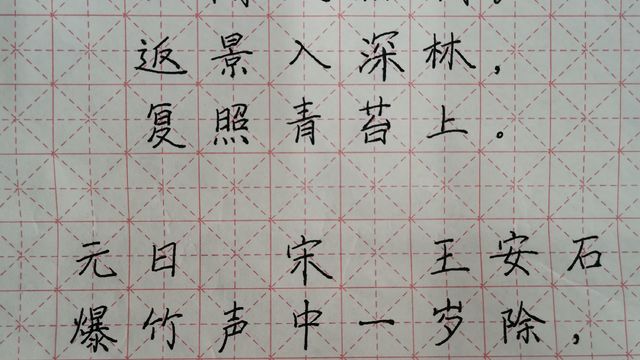 返景入深林，
复照青苔上。
元日 宋 王安石
爆竹声中一岁除，